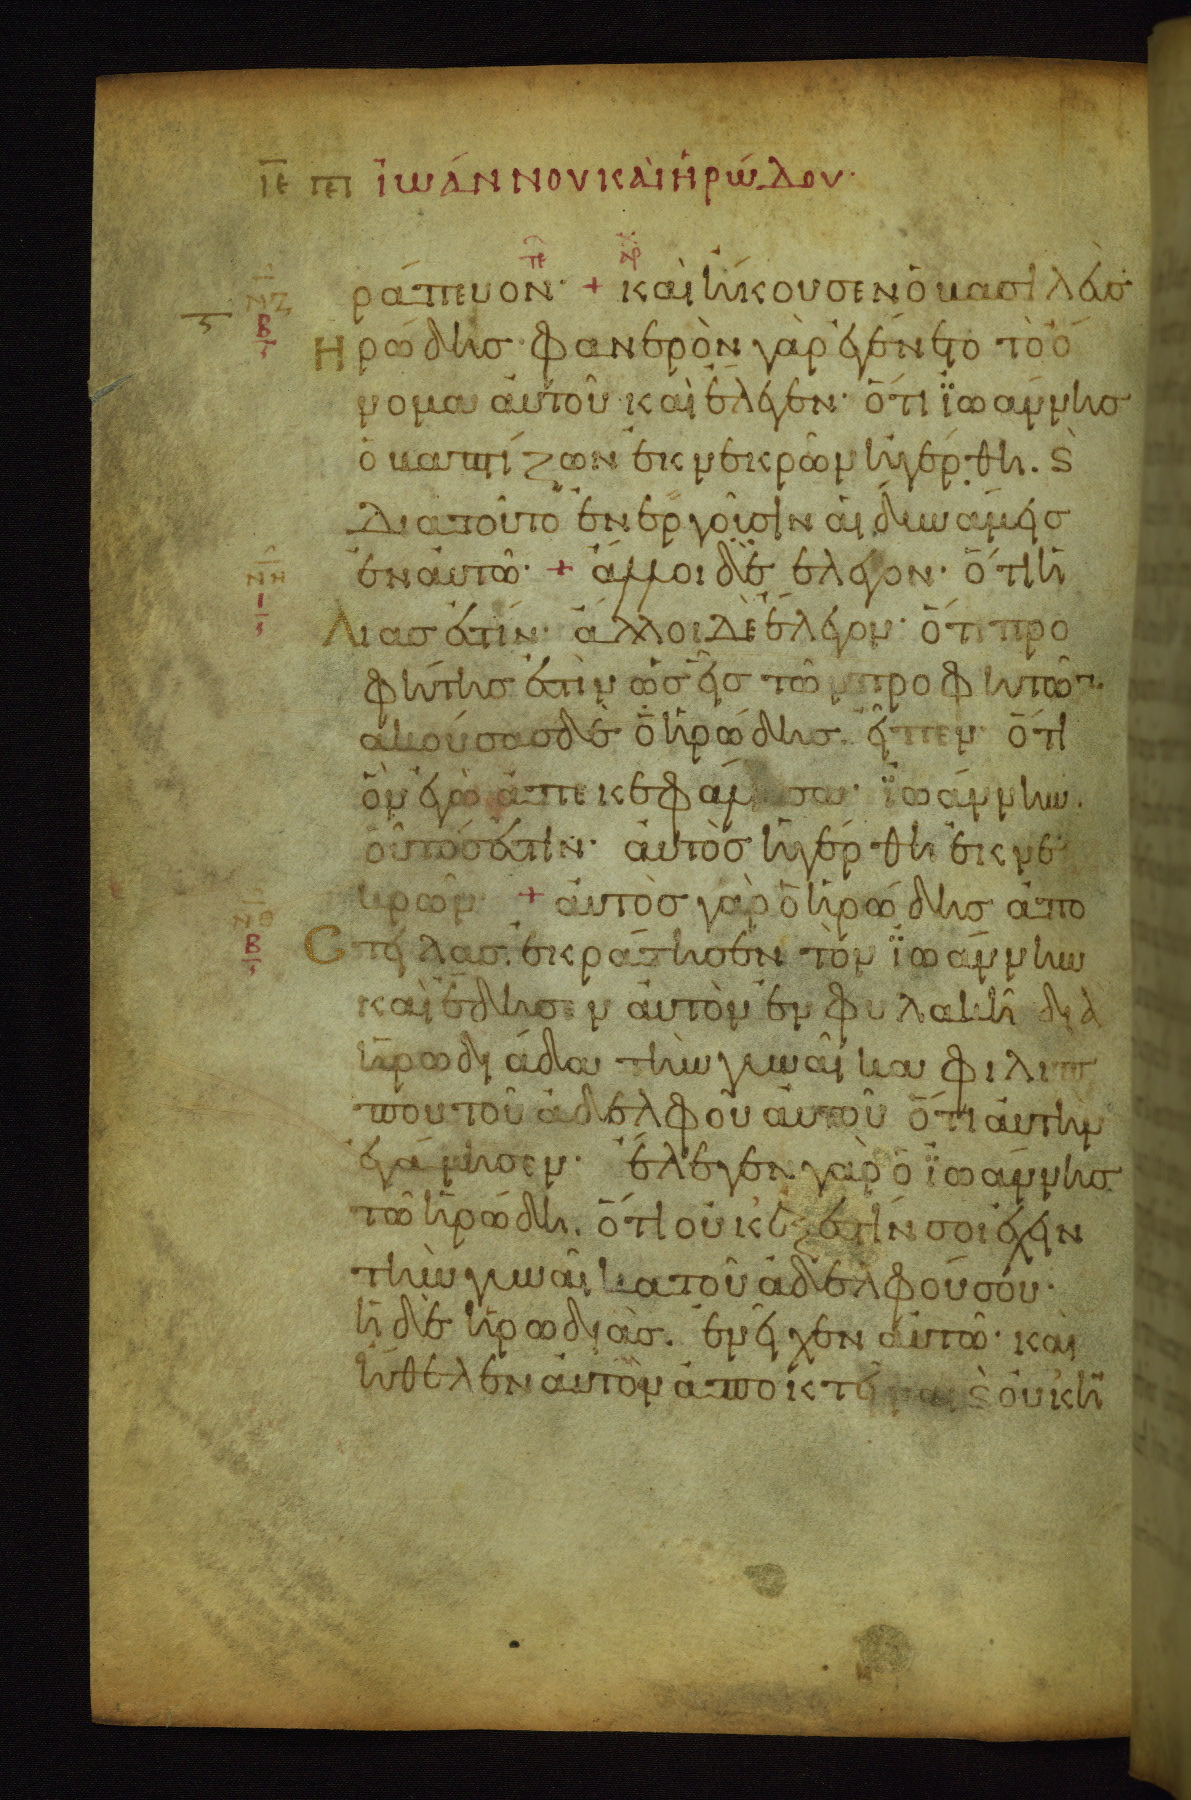 ΙΕ ΠΕΡΙ ἰωάννου καὶ ἡρώδου·
τε αρ
ΝΖ ράπευον· + καὶ ἤκουσεν ὁ βασιλεὺς
Β Ἡρώδης· φανερὸν γὰρ ἐγένετο τὸ ὄ
νομα αὐτοῦ καὶ ἔλεγεν· ὅτι ἰωάννης
ὁ βαπτίζων ἐκ νεκρῶν ἠγέρθη. ϗ
Διατοῦτο ἐνεργοῦσιν αἱ δυνάμεις
ΝΗ ἐν αὐτῶ· + ἄλλοι δὲ ἔλεγον· ὅτι ἠ
Ι λίας ἐστίν· ἄλλοι δὲ ἔλεγον· ὅτι προ
φήτης ἐστὶν ὡς εἷς τῶν προφητῶν.
ἀκούσας δὲ ὁ ἡρώδης εἶπεν ὅτι
ὃν ἐγὼ ἀπεκεφάλισα· ἰωάννην.
οὗτός ἐστιν· αὐτὸς ἠγέρθη ἐκ νε
κρῶν + αὐτὸς γὰρ ὁ ἡρώδης ἀπο
ΝΘ
Β Στείλας. ἐκράτησεν τὸν ἰωάννην
καὶ ἔδησεν αὐτὸν ἐν φυλακῆ διὰ
ἡρωδιάδα τὴν γυναῖκα φιλίπ
που τοῦ ἀδελφοῦ αὐτοῦ ὅτι αὐτὴν
ἐγάμησεν· ἔλεγεν γὰρ ὁ ἰωάννης
τῶ ἡρώδη. ὅτι οὐκ ἔξεστίν σοι ἔχειν
τὴν γυναῖκα τοῦ ἀδελφοῦ σου·
ἡ δὲ ἡρωδιὰς. ἐνεῖχεν αὐτῶ· καὶ
ἤθελεν αὐτὸν ἀποκτεῖναι ϗ οὐκ ἠ